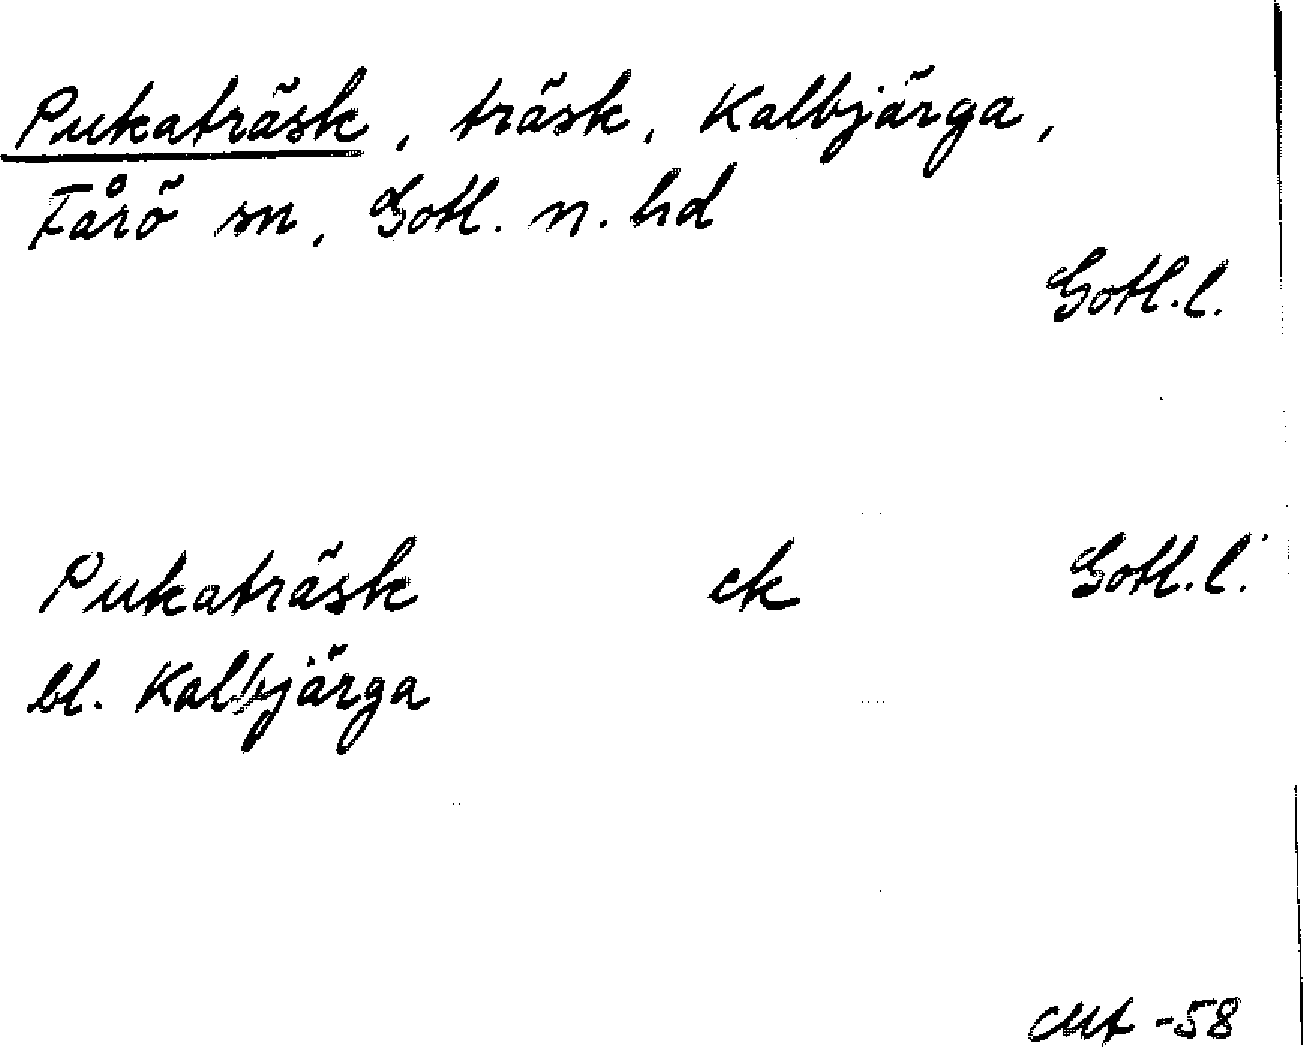 Pukaträsk, träsk, Kalbjärga,
Fårö sn, Gotl. n. hd
Gotl.l.
Pukaträsk ek Gotl.l.
bl. Kalbjärga
-58